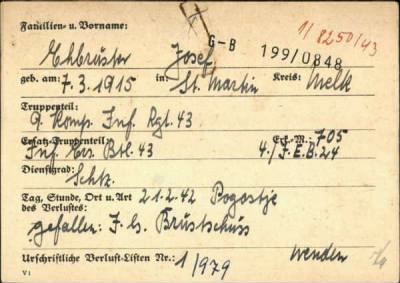 Familien- u. Vorname: 1/8250/43
Ehbrüster Josef G-B 199/0848
geb. am: 7.3.1915 in: St. Martin Kreis: Melk
Truppenteil:
9. Komp. Inf. Rgt. 43
Ersatz-Truppenteil: Erk.-M.: 705
Inf. Ers. Btl. 43 4./J.E.B. 24
Dienstgrad:
Schtz.
Tag, Stunde, Ort u. Art 21.2.42 Pogostje
des Verlustes:
gefallen: J. G. Brustschuss
wenden
Urschriftliche Verlust-Listen Nr. 1/979
V 1